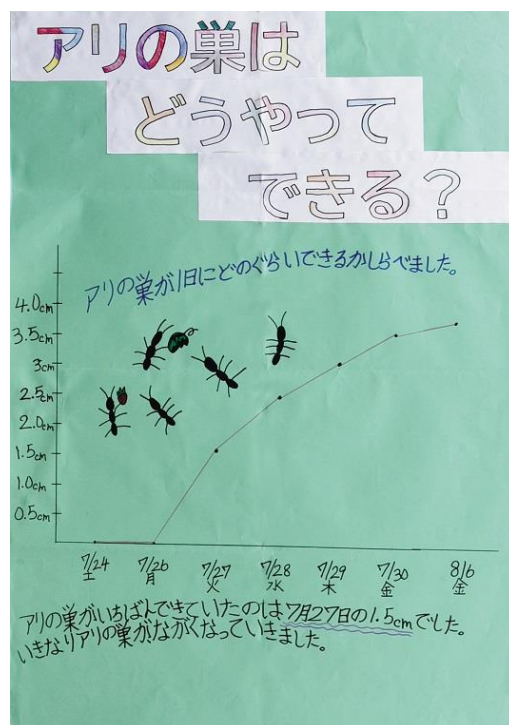 アリの巣は
どうやって
できる?
アリの巣が1日にどのぐらいできるかしらべました。
4.0cm
3.5cm
3cm
2.5cm
2.0cm
1.5cm
1.0cm
0.5cm
7/24 7/26 7/27 7/28 7/29 7/30 8/6
土 月 火 水 木 金 金
アリの巣がいちばんできていたのは7月27日の1.5cmでした。
いきなりアリの巣がながくなっていきました。